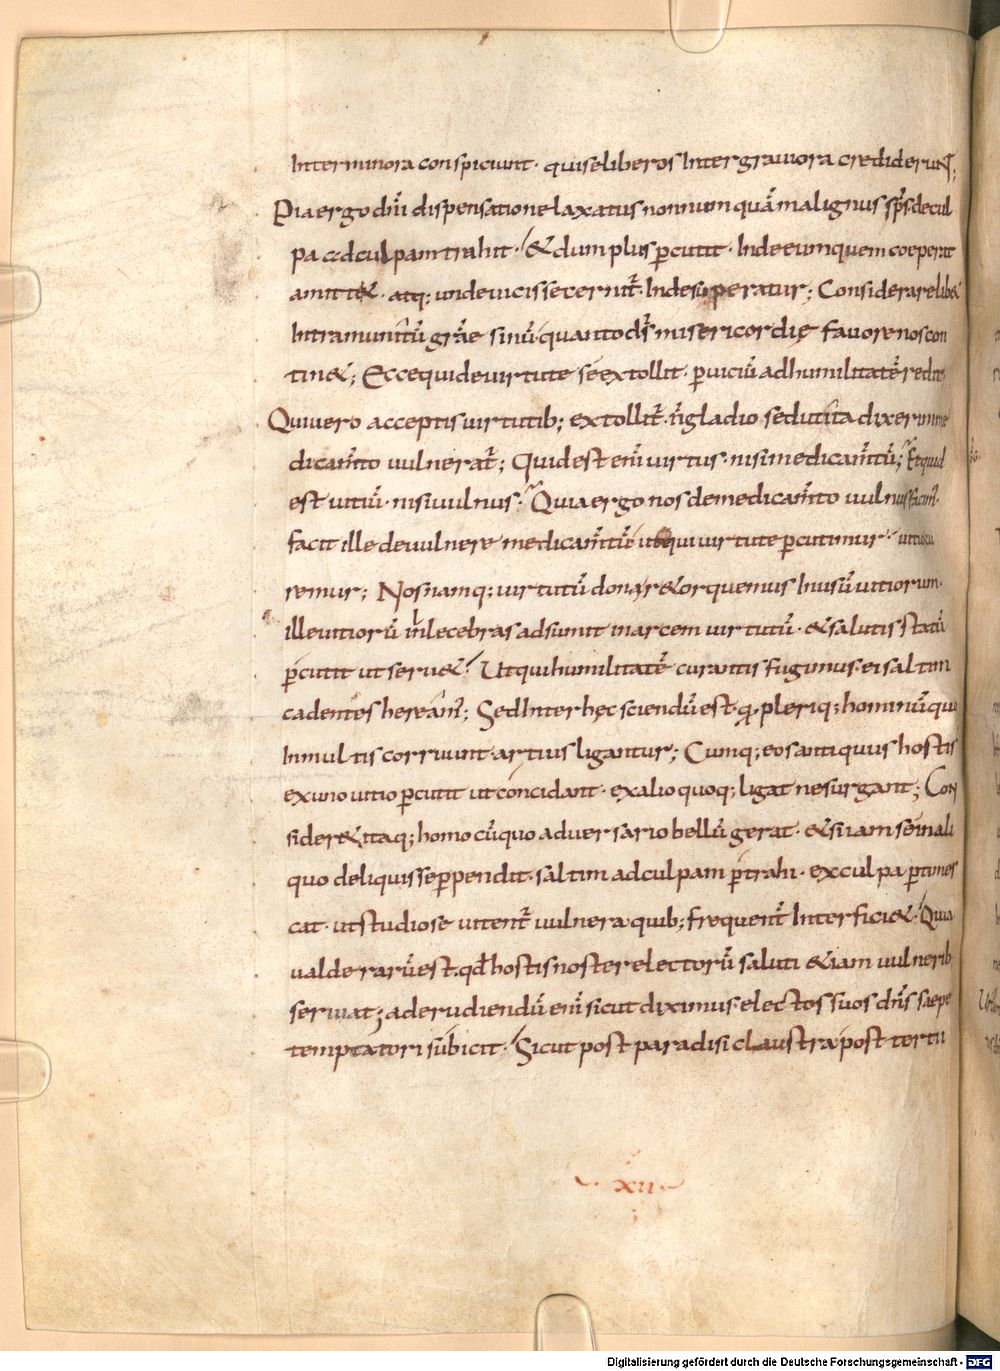 Inter minora conspiciunt · qui se liberos Inter graviora crediderunt;
Pia ergo dn̄i dispensatione laxatus nonnumquā malignus sp̄s de cul
pa ad culpam trahit · & dum plus ꝑcutit · Inde eum quem coeperat
amitt& · atq; unde vicisse cernit̄ · Inde superatur; Considerare lib&
Intra munitū grāe sinū quanto dī misericordię favore nos con
tin&; Ecce qui de virtute se extollit · ꝑ viciū ad humilitatē redit
Qui vero acceptis virtutib; extollit̄ · n̄ gladio sed ut ita dixerim me
dicam̄to vulnerat̄; Quid est eni virtus · nisi medicam̄tū; Et quid
est vitiū · nisi vulnus · Quia ergo nos de medicam̄to vulnus facim̄ ·
facit ille de vulnere medicam̄tū ut qui virtute ꝑcutimur · vitio cu
remur; Nos namq; virtutū dona r&orquemus In usū vitiorum ·
ille vitiorū inlecebras adsumit in arcem virtutū · & salutis statū
ꝑcutit ut serv& · Ut qui humilitatē currentes fugimus · ei saltim
cadentes hereām̄; Sed Inter hęc sciendū est · qꝫ pleriq; hominū quo
In multis corruunt · artius ligantur; Cumq; eos antiquus hostis
ex uno vitio ꝑcutit ut concidant · ex alio quoq; ligat ne surgant; Con
sider& itaq; homo cū quo adversario bellū gerat · & si iam se in ali
quo deliquisse ꝑpendit · saltim ad culpam ꝑtrahi · ex culpa ꝑtimes
cat · ut studiose vitent̄ vulnera quib; frequent̄ Interfici& · Quia
valde rarū est · qd̄ hostis noster electorū saluti & iam vulnerib
serviat; ad erudiendū eni sicut diximus electos suos dn̄s saepe
temptatori subicit · Sicut post paradisi claustra post tertii
· XII ·
Digitalisierung gefördert durch die Deutsche Forschungsgemeinschaft - DFG